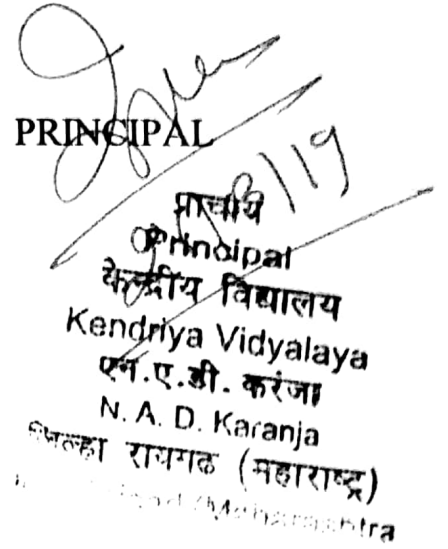 PRINCIPAL
/19
प्राचार्य
Principal
केन्द्रीय विद्यालय
Kendriya Vidyalaya
एन.ए.डी. करंजा
N. A. D. Karanja
जिल्हा रायगढ (महाराष्ट्र)
(Maharashtra